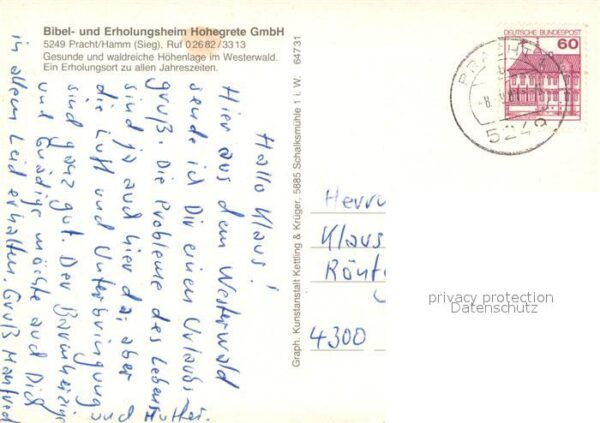 Bibel- und Erholungsheim Hohegrete GmbH
5249 Pracht/Hamm (Sieg), Ruf 0 26 82 / 33 13
Gesunde und waldreiche Höhenlage im Westerwald.
Ein Erholungsort zu allen Jahreszeiten.
Hallo Klaus!
Hier aus dem Westerwald
sende ich Dir einen Urlaubs
gruß. Die Probleme des Lebens
sind ja auch hier da, aber
die Luft und Unterbringung
sind ganz gut. Der Barmherzige
und Gnädige möchte auch Dich
in allem Leid erhalten. Gruß Manfred
und Mutter.
Graph. Kunstanstalt Kettling & Krüger, 5885 Schalksmühle 1 i. W. 64731
DEUTSCHE BUNDESPOST
60
PRACHT
5249
Herrn
Klaus
Rönt
4300
privacy protection
Datenschutz